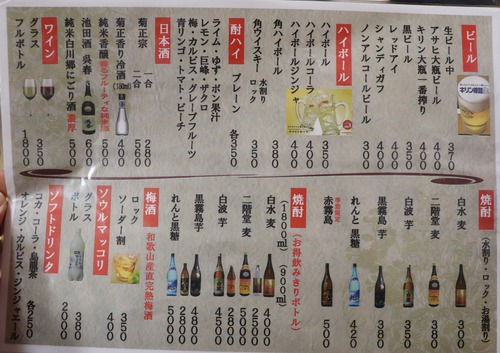 ビール
生ビール中 370
アサヒ大瓶ビール
キリン大瓶一番搾り
黒ビール
レッドアイ 400
シャンディガフ 400
ノンアルコールビール 300
ハイボール
ハイボール 350
ハイボールコーラ 400
ハイボールジンジャ 400
角ハイボール 380
角ウイスキー 水割り ロック 350
酎ハイ
プレーン 各350
ライム・ゆず・ポン果汁
レモン・巨峰・ザクロ
梅・カルピス・グレープフルーツ
青リンゴ・トマト・ピーチ
日本酒
菊正宗 一合 280
二合 560
菊正香り冷酒(180ml) 400
純米香醸 香るフルーティな純米酒 500
池田酒 呉春 600
純米白川郷にごり酒 濃厚 500
ワイン
グラス 350
フルボトル 1800
焼酎 (水割り・ロック・お湯割り)
白水 麦 300
二階堂 麦 380
白波 芋 350
黒霧島 芋 380
れんと 黒糖 420
季節限定 赤霧島 500
焼酎 (お得飲みきりボトル)
(1800ml) (900ml)
白水 麦 4000
二階堂 麦 5000 2500
白波 芋 4500 2800
黒霧島 芋 4800 2800
れんと 黒糖 5000
梅酒 和歌山産直完熟梅酒
ロック 350
ソーダー割 400
ソウルマッコリ
グラス 380
ボトル 2000
ソフトドリンク
コカ・コーラ・烏龍茶 各250
オレンジ・カルピス・ジンジャエール